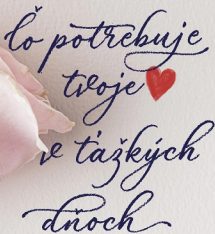 Čo potrebuje
tvoje
v ťažkých
dňoch